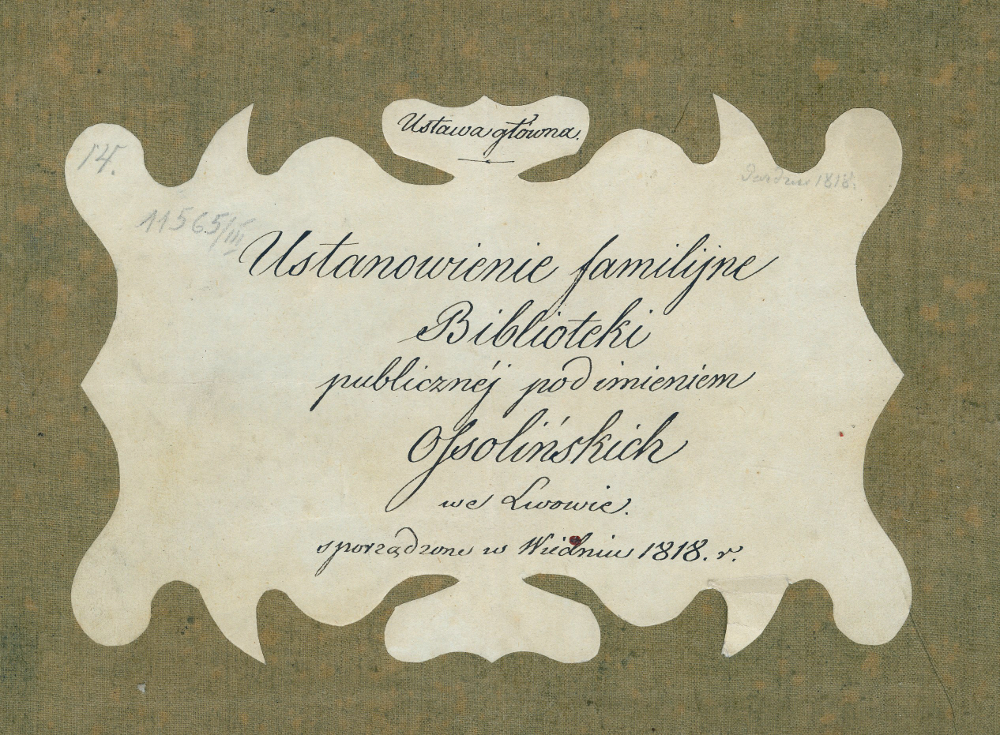 Ustawa główna.
14.
1818.
11565/III
Ustanowienie familijne
Biblioteki
publicznéj pod imieniem
Ossolińskich
we Lwowie.
sporządzone w Wiédniu 1818. r.